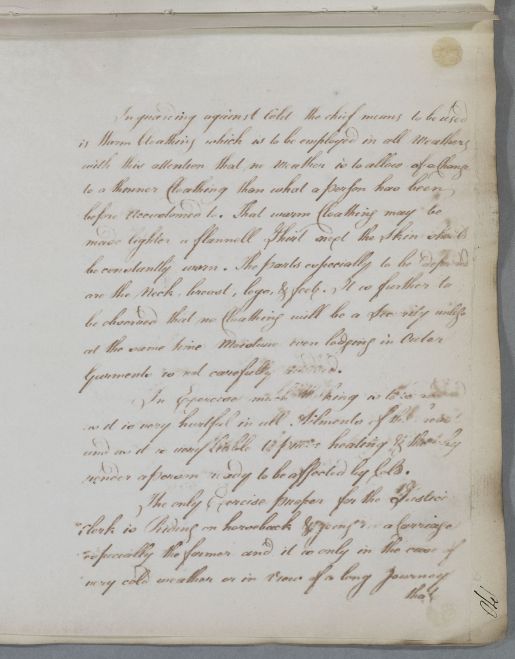 In guarding against Cold the chief means to be used
is Warm Cloathing which is to be employed in all Weathers
with this attention that no Weather is to allow of a Change
to a thinner Cloathing than what a person has been
before Accustomed to. That warm Cloathing may be
made lighter a flannell Shirt next the Skin should
be constantly worn. The parts especially to be
are the Neck, breast, legs, & feet. It is further to
be observed that no Cloathing will be a Security unless
at the same time Moisture even lodging in Outer
Garments is not carefully
In Exercise much king is to
as it is very hurtful in all Ailments of the
and as it is very liable to prove heating & thereby
render a person ready to be affected by Cold.
The only Exercise proper for the Justice
Clerk is Riding on horseback & going in a Carriage
especially the former and it is only in the case of
very cold weather or in view of a long Journey
that